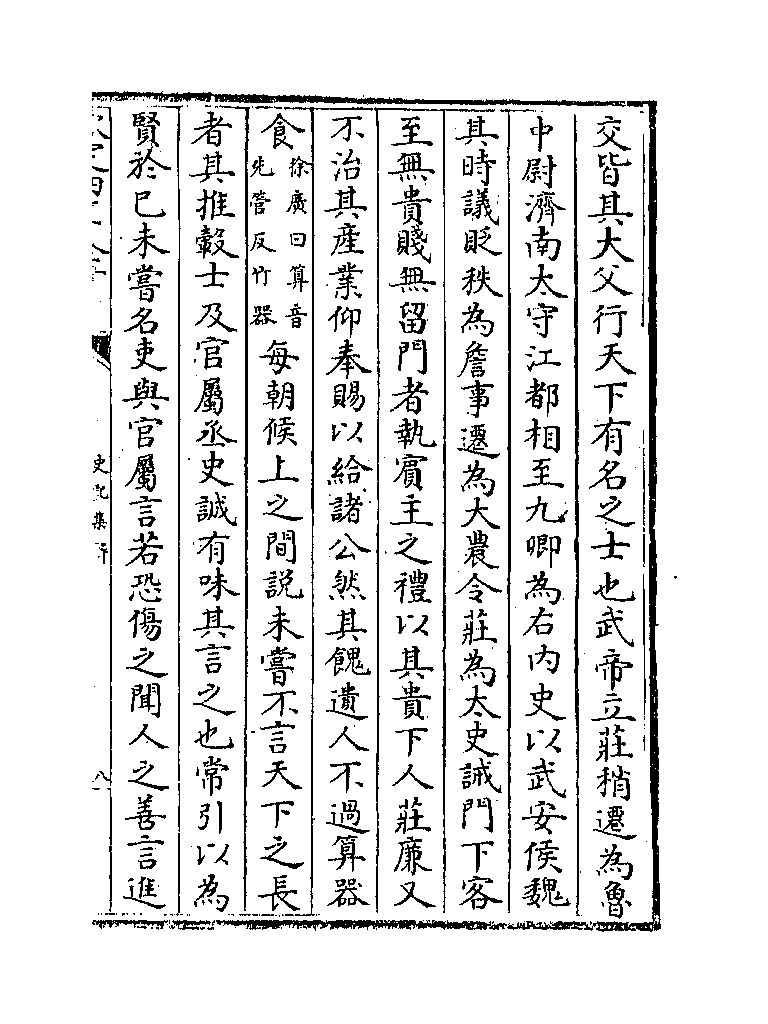 交皆其大父行天下有名之士也武帝立莊稍遷為魯
中尉濟南太守江都相至九卿為右內史以武安侯魏
其時議貶秩為詹事遷為大農令莊為太史誡門下客
至無貴賤無留門者執賓主之禮以其貴下人莊廉又
不治其產業仰奉賜以給諸公然其餽遺人不過算器
食徐廣曰算音先管反竹器每朝候上之間説未嘗不言天下之長
者其推轂士及官屬丞史誠有味其言之也常引以為
賢於已未嘗名吏與官屬言若恐傷之聞人之善言進
史記集解
八